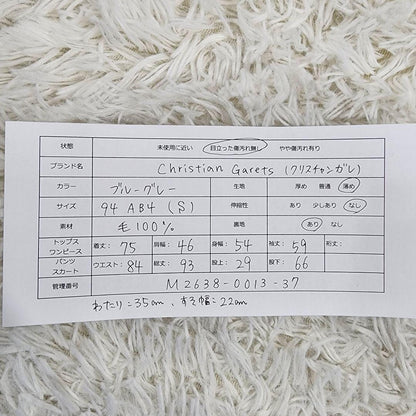 状態 未使用に近い 目立った傷汚れ無し やや傷汚れ有り
ブランド名 Christian Garets (クリスチャンガレ)
カラー ブルーグレー 生地 厚め 普通 薄め
サイズ 94 AB4 (S) 伸縮性 あり 少しあり なし
素材 毛100% 裏地 あり なし
トップス ワンピース 着丈: 75 肩幅: 46 身幅: 54 袖丈: 59 裄丈:
パンツ スカート ウエスト: 84 総丈: 93 股上: 29 股下: 66
管理番号 M2638-0013-37
わたり=35cm、すそ幅=22cm